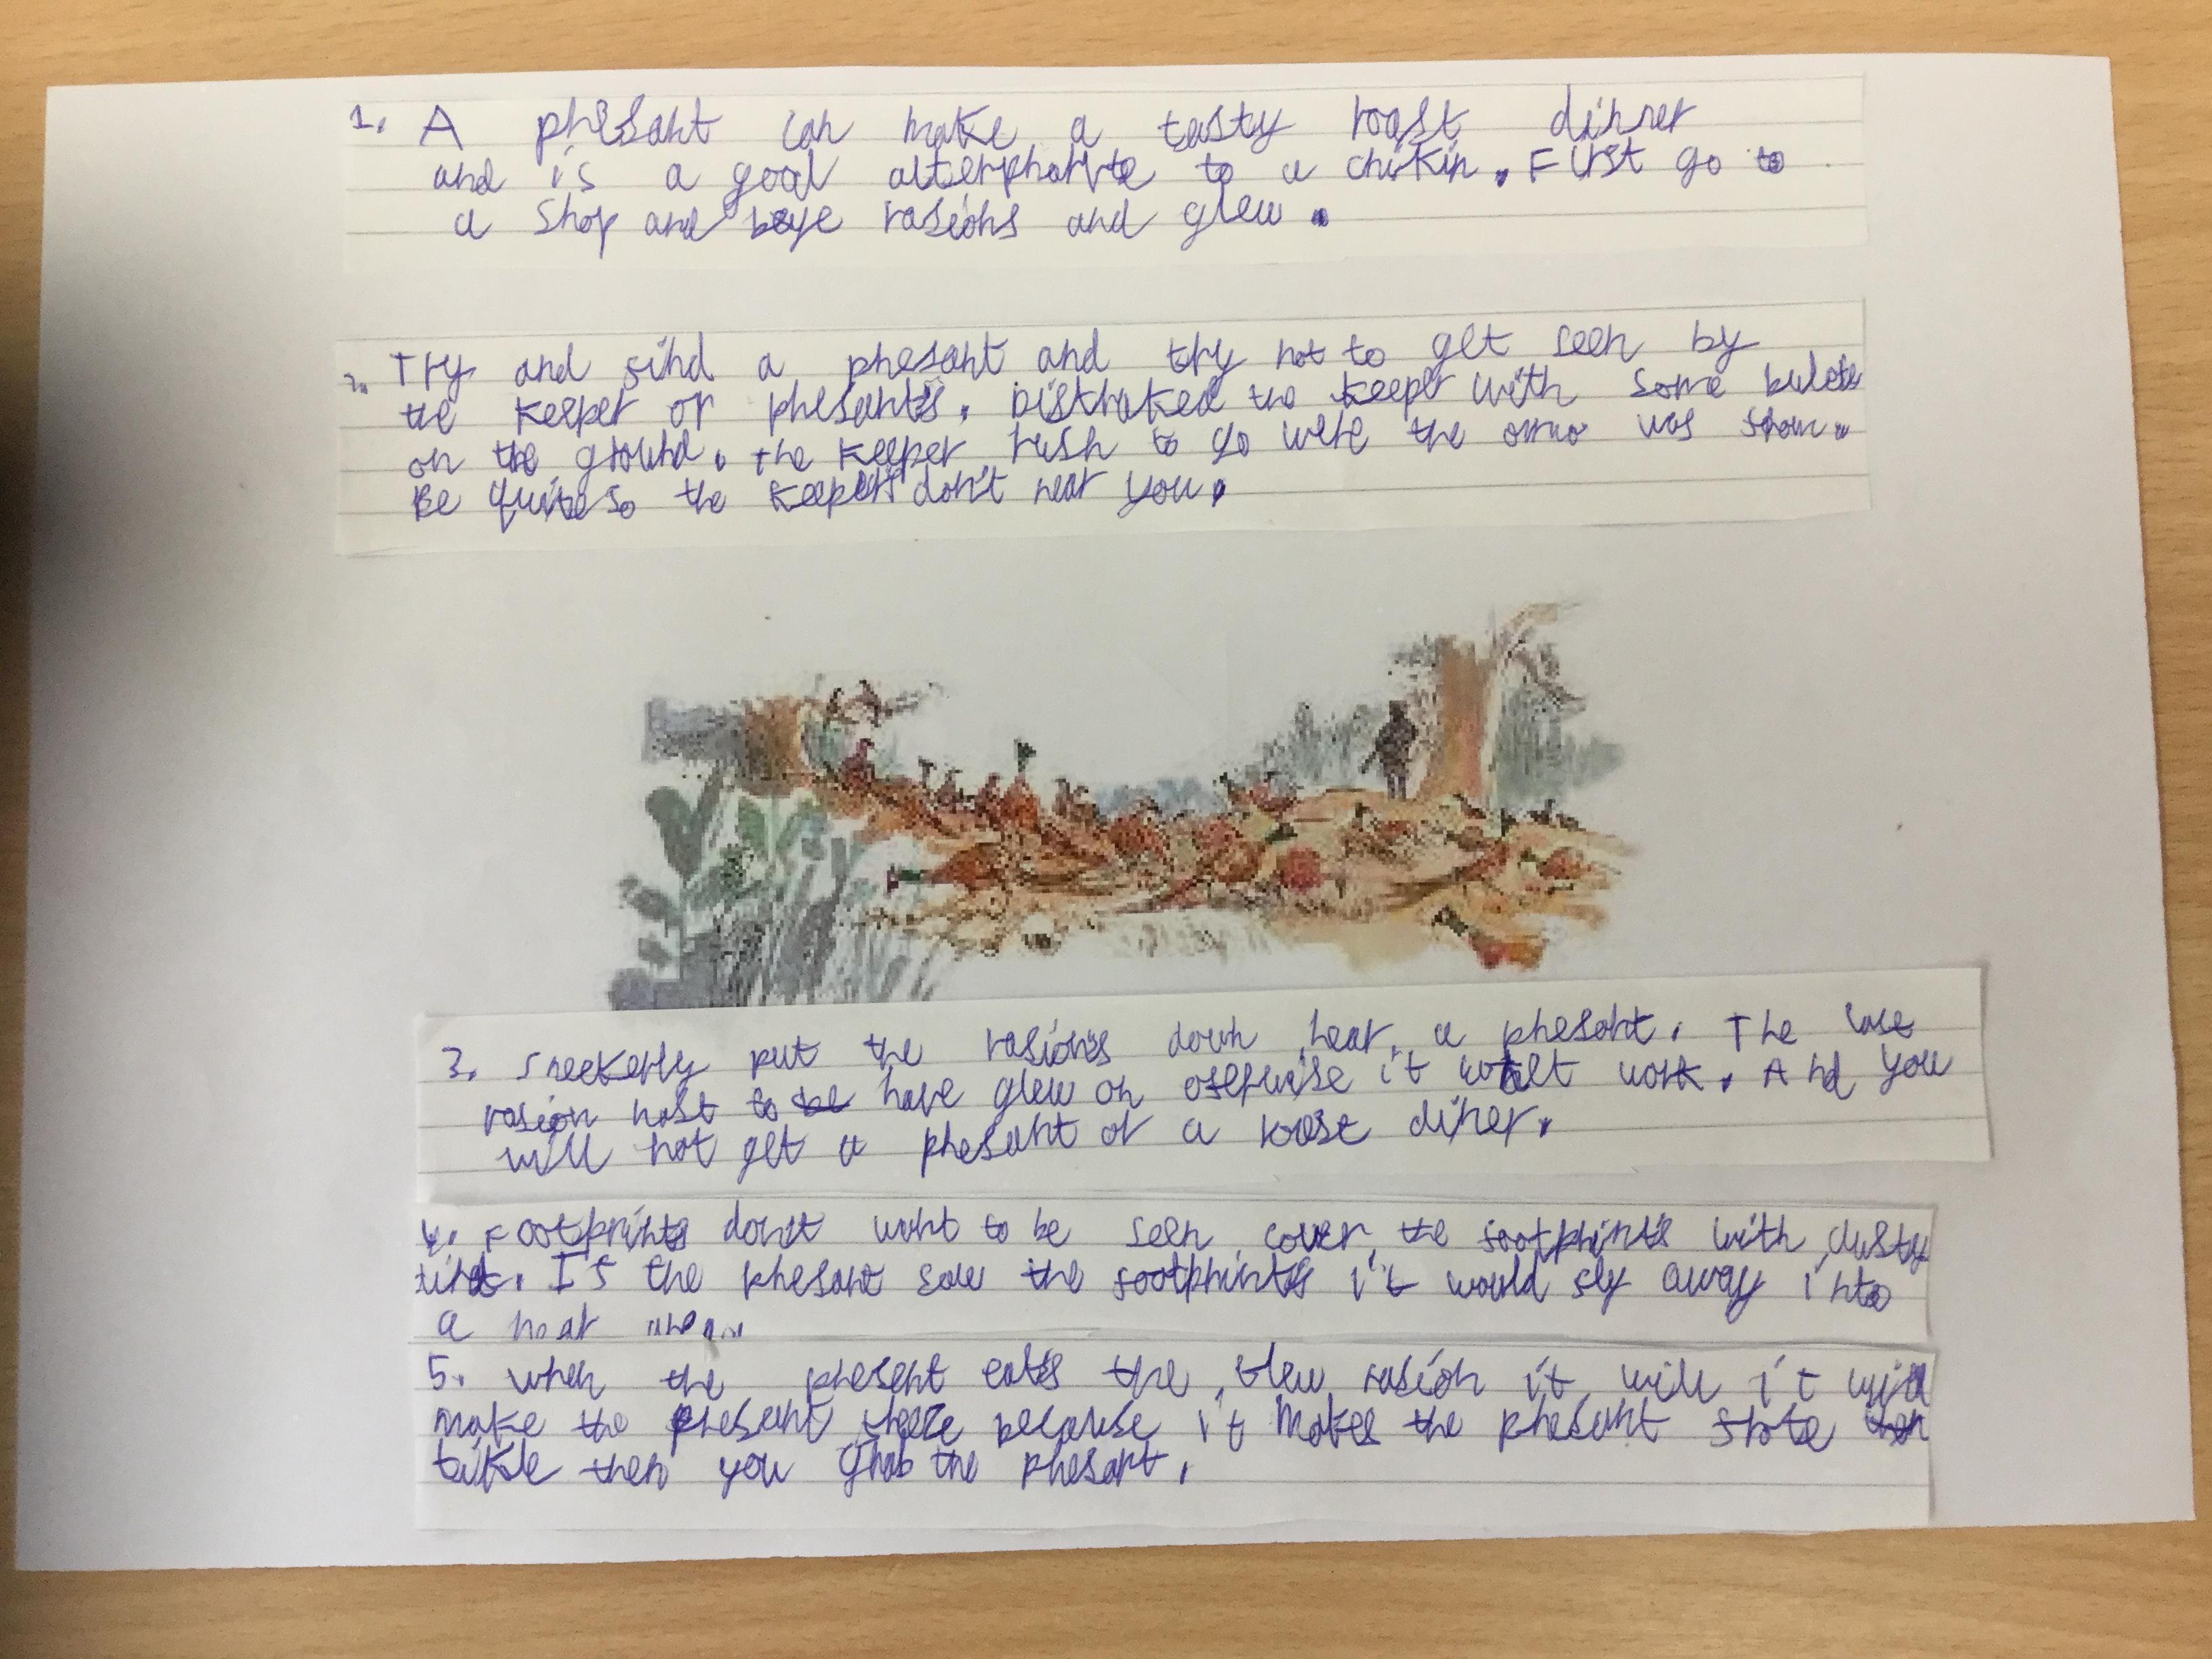 1. A phesant can make a tasty roast dinner
and is a good alternharvte to a chikin. First go to
a shop and beye rasions and glew.
2. Try and find a phesant and try not to get seen by
the keeper or phesants. Distraked the keeper with some bulets
on the ground. the keeper rush to go were the amo was
Be quite so the keepers don't hear you.
3. Sneekerly put the rasions down near a phesant. The
rasion hast to have glew on otherwise it wont work. And you
will not get a phesant or a roast diner.
4. Footprints dont want to be seen cover the footprints with dusty
If the phesant saw the footprints it would fly away into
a near
5. when the phesent eats the glew rasion it will it will
make the phesant because it makes the phesant
tikle then you grab the phesant.